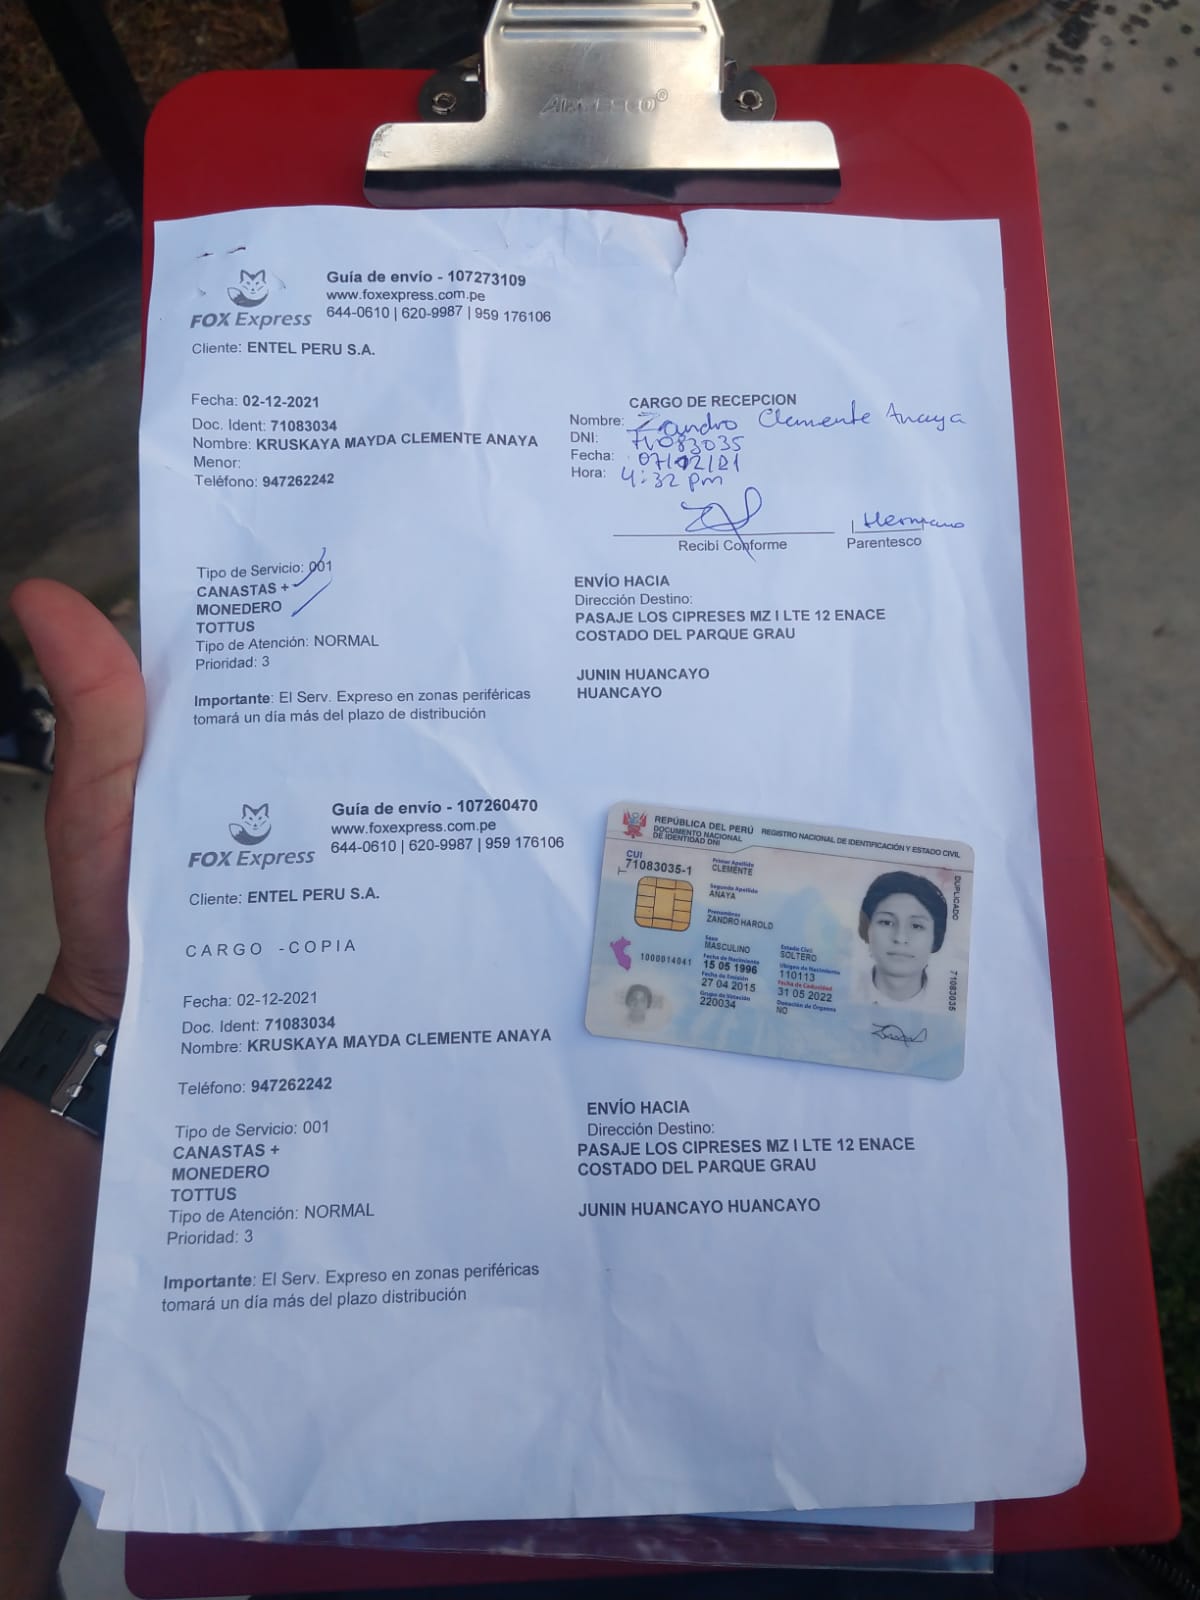 ALMESCO®
Guía de envío - 107273109
www.foxexpress.com.pe
644-0610 | 620-9987 | 959 176106
FOX Express
Cliente: ENTEL PERU S.A.
Fecha: 02-12-2021
Doc. Ident: 71083034
Nombre: KRUSKAYA MAYDA CLEMENTE ANAYA
Menor:
Teléfono: 947262242
CARGO DE RECEPCION
Nombre: Zandro Clemente Anaya
DNI: 71083035
Fecha: 07/12/21
Hora: 4:32 pm
Hermano
Recibí Conforme Parentesco
Tipo de Servicio: 001
CANASTAS +
MONEDERO
TOTTUS
Tipo de Atención: NORMAL
Prioridad: 3
Importante: El Serv. Expreso en zonas periféricas
tomará un día más del plazo de distribución
ENVÍO HACIA
Dirección Destino:
PASAJE LOS CIPRESES MZ I LTE 12 ENACE
COSTADO DEL PARQUE GRAU
JUNIN HUANCAYO
HUANCAYO
Guía de envío - 107260470
www.foxexpress.com.pe
644-0610 | 620-9987 | 959 176106
FOX Express
Cliente: ENTEL PERU S.A.
CARGO - COPIA
Fecha: 02-12-2021
Doc. Ident: 71083034
Nombre: KRUSKAYA MAYDA CLEMENTE ANAYA
Teléfono: 947262242
Tipo de Servicio: 001
CANASTAS +
MONEDERO
TOTTUS
Tipo de Atención: NORMAL
Prioridad: 3
Importante: El Serv. Expreso en zonas periféricas
tomará un día más del plazo distribución
REPÚBLICA DEL PERÚ REGISTRO NACIONAL DE IDENTIFICACIÓN Y ESTADO CIVIL
DOCUMENTO NACIONAL
DE IDENTIDAD DNI
CUI
71083035-1
Primer Apellido
CLEMENTE
Segundo Apellido
ANAYA
Prenombres
ZANDRO HAROLD
Sexo
MASCULINO
Estado Civil
SOLTERO
Fecha de Nacimiento
15 05 1996
Ubigeo de Nacimiento
110113
Fecha de Emisión
27 04 2015
Fecha de Caducidad
31 05 2022
Grupo de Votación
220034
Donación de Órganos
NO
1000014041
DUPLICADO
71083035
ENVÍO HACIA
Dirección Destino:
PASAJE LOS CIPRESES MZ I LTE 12 ENACE
COSTADO DEL PARQUE GRAU
JUNIN HUANCAYO HUANCAYO